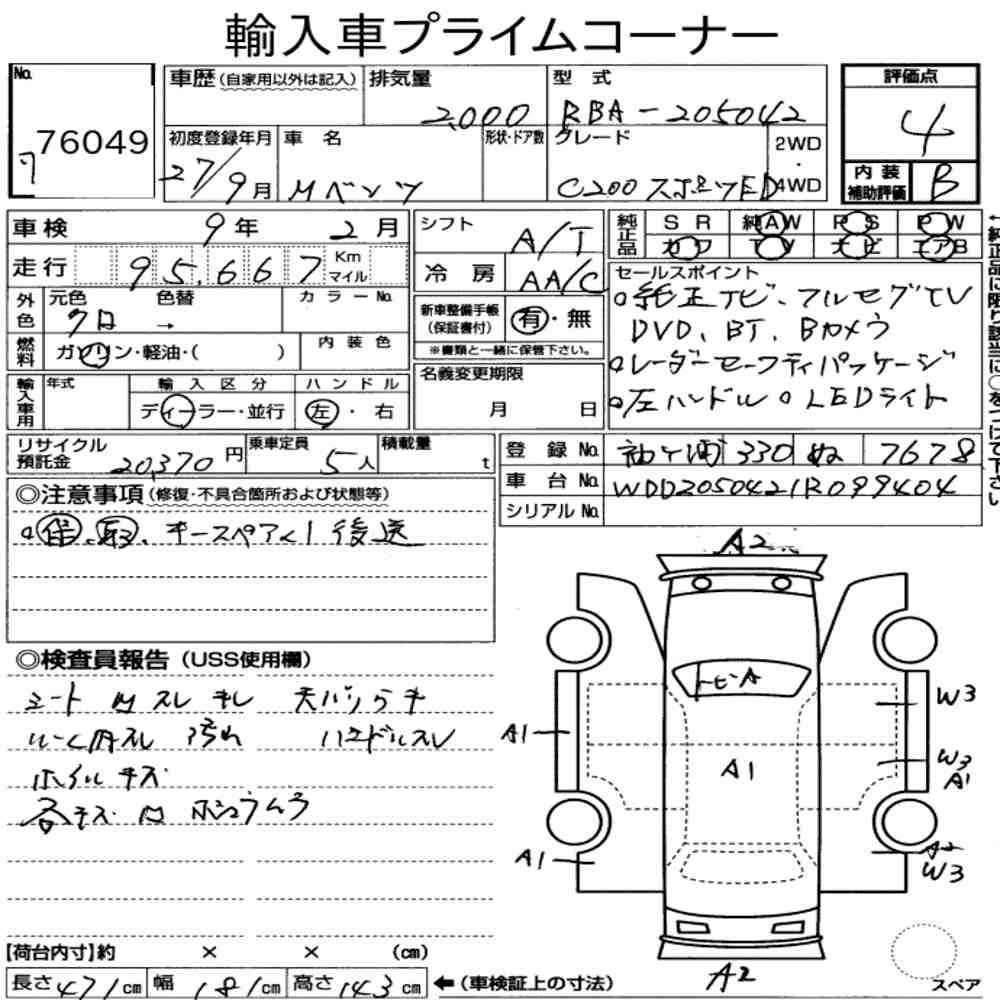 輸入車プライムコーナー
No. 76049
車歴 (自家用以外は記入) 排気量 2,000 型式 RBA-205042
初度登録年月 27/9月 車名 Mベンツ 形状・ドア数 グレード C200 スポーツED 2WD・4WD
評価点 4
内装補助評価 B
車検 9年 2月
走行 95,667 Km マイル
外色 元色 クロ 色替 → カラーNo.
燃料 ガソリン・軽油・( ) 内装色
輸入車用 年式 輸入区分 ディーラー・並行 ハンドル 左・右
シフト A/T
冷房 AA/C
新車整備手帳 (保証書付) 有・無
※書類と一緒に保管下さい。
名義変更期限 月 日
純正品 SR 純AW PS PW
カワ TV ナビ エアB
セールスポイント
○純正ナビ、フルセグTV
DVD、BT、Bカメラ
○レーダーセーフティパッケージ
○左ハンドル ○LEDライト
←純正品に限り該当に○をつけて下さい
リサイクル預託金 20,370円 乗車定員 5人 積載量 t
登録No. 袖ヶ浦 330 ぬ 7678
車台No. WDD2050421R099404
シリアルNo.
◎注意事項 (修復・不具合箇所および状態等)
○保、取、キースペア×1 後送
◎検査員報告 (USS使用欄)
シート内スレ キレ 天バリうき
ハンドルスレ
ホイルキズ
各キズ
A2
トビA
A1
A1
A1
W3
W3
A1
A2
W3
A2
スペア
【荷台内寸】約 × × (cm)
長さ 471cm 幅 181cm 高さ 143cm ←(車検証上の寸法)